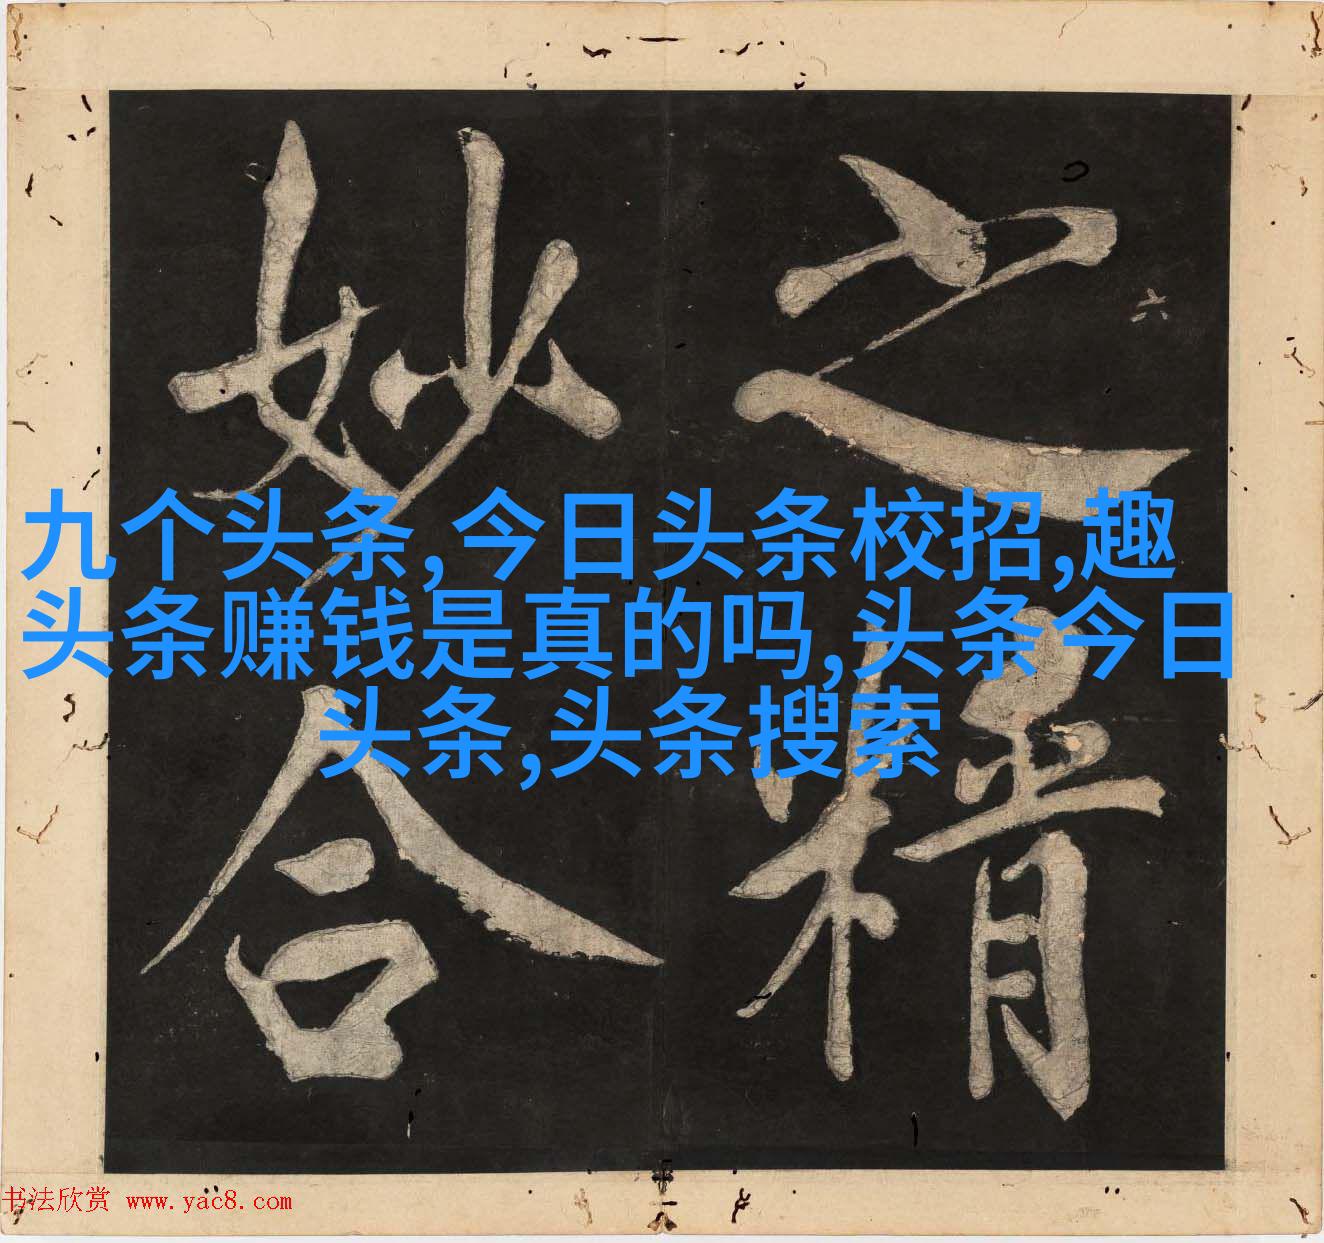 之精
妙合
六
九个头条,今日头条校招,趣
头条赚钱是真的吗,头条今日
头条,头条搜索
书法欣赏 www.yac8.com